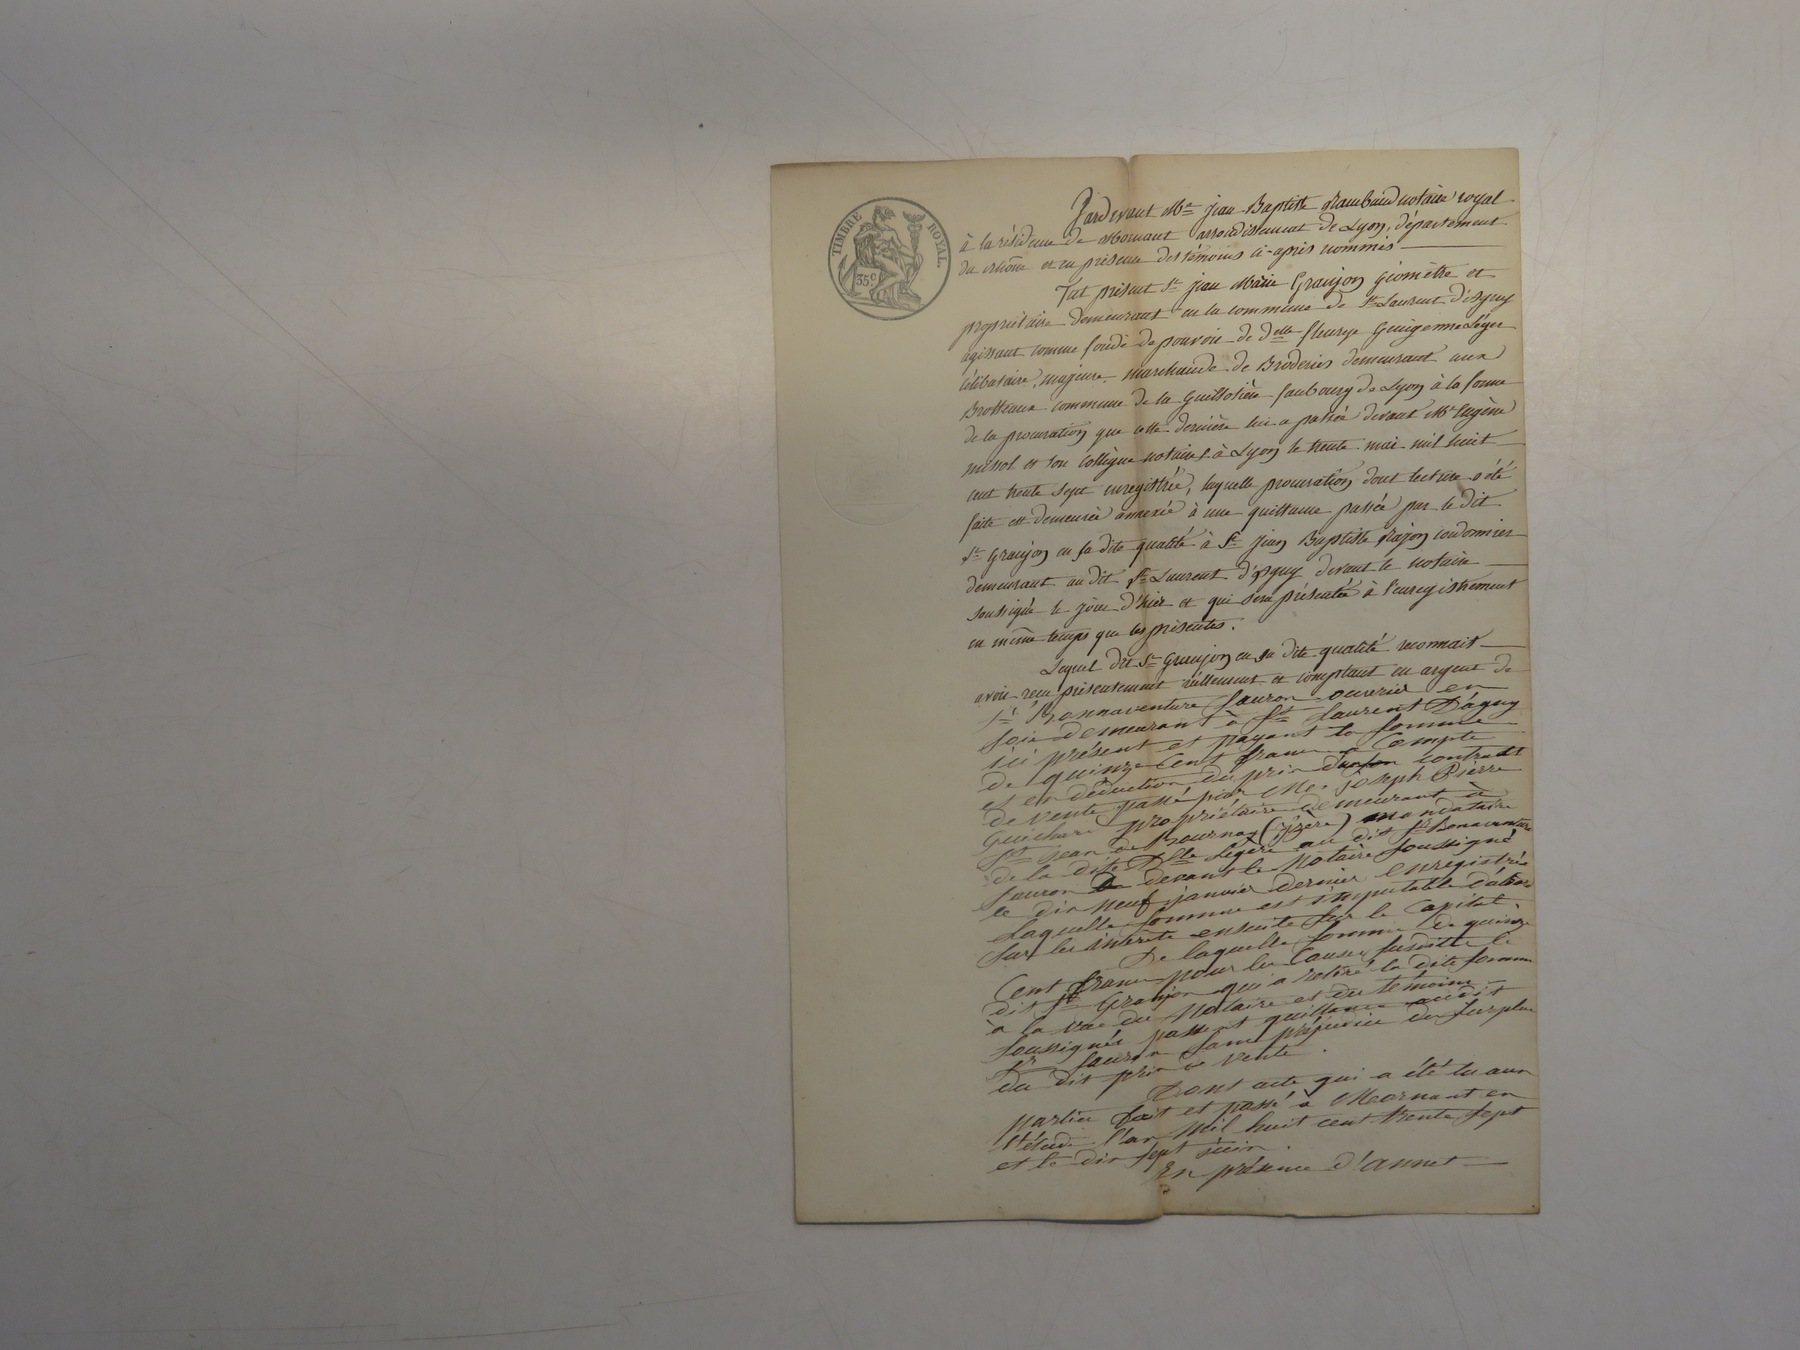 TIMBRE ROYAL.
35 c.
Pardevant Me Jean Baptiste Rambaud notaire royal
à la résidence de Mornant arrondissement de Lyon, département
du Rhône et en présence des témoins ci-après nommés
fut présent Sr Jean Marie Granjon géomètre et
propriétaire demeurant en la commune de St Laurent d'agny
agissant comme fondé de pouvoir de delle fleurye Leger
célibataire, majeure, marchande de Broderies demeurant aux
Brotteaux commune de la Guillotière faubourg de Lyon à la forme
de la procuration que cette dernière lui a passée devant Me Eugène
et son collègue notaires à Lyon le trente mai mil huit
cent trente sept enregistrée, laquelle procuration dont lecture a été
faite est demeurée annexée à une quittance passée par le dit
Sr Granjon en sa dite qualité à Sr Jean Baptiste cordonnier
demeurant au dit St Laurent d'agny devant le notaire
soussigné le jour d'hier et qui sera présentée à l'enregistrement
en même temps que les présentes.
Lequel dit Sr Granjon en sa dite qualité reconnait
avoir reçu présentement réellement et comptant en argent de
Sr Bonnaventure fauron ouvrier en
soie demeurant à St Laurent Dagny
ici présent et payant la somme
de quinze Cent francs a Compte
et en déduction du prix contrat
de vente passé par Me joseph Pierre
Guichard propriétaire demeurant à
St jean de Bournay (isère) mandataire
de la dite Dlle Légère au dit Sr Bonaventure
fauron devant le Notaire soussigné
le dix neuf janvier dernier enregistrée
Laquelle somme est imputable dabord
sur les intérêts ensuite sur le Capital
De laquelle somme de quinze
Cent francs pour les Causes susdites le
dit Sr Granjon qui a retiré la dite somme
à la vue du Notaire et des témoins
soussignés passent quittance audit
Sr fauron sans préjudice du surplus
du dit prix de vente.
Dont acte qui a été lu aux
parties fait et passé a Mornant en
l'étude l'an Mil huit cent trente sept
et le dix sept juin.
En présence d'annet